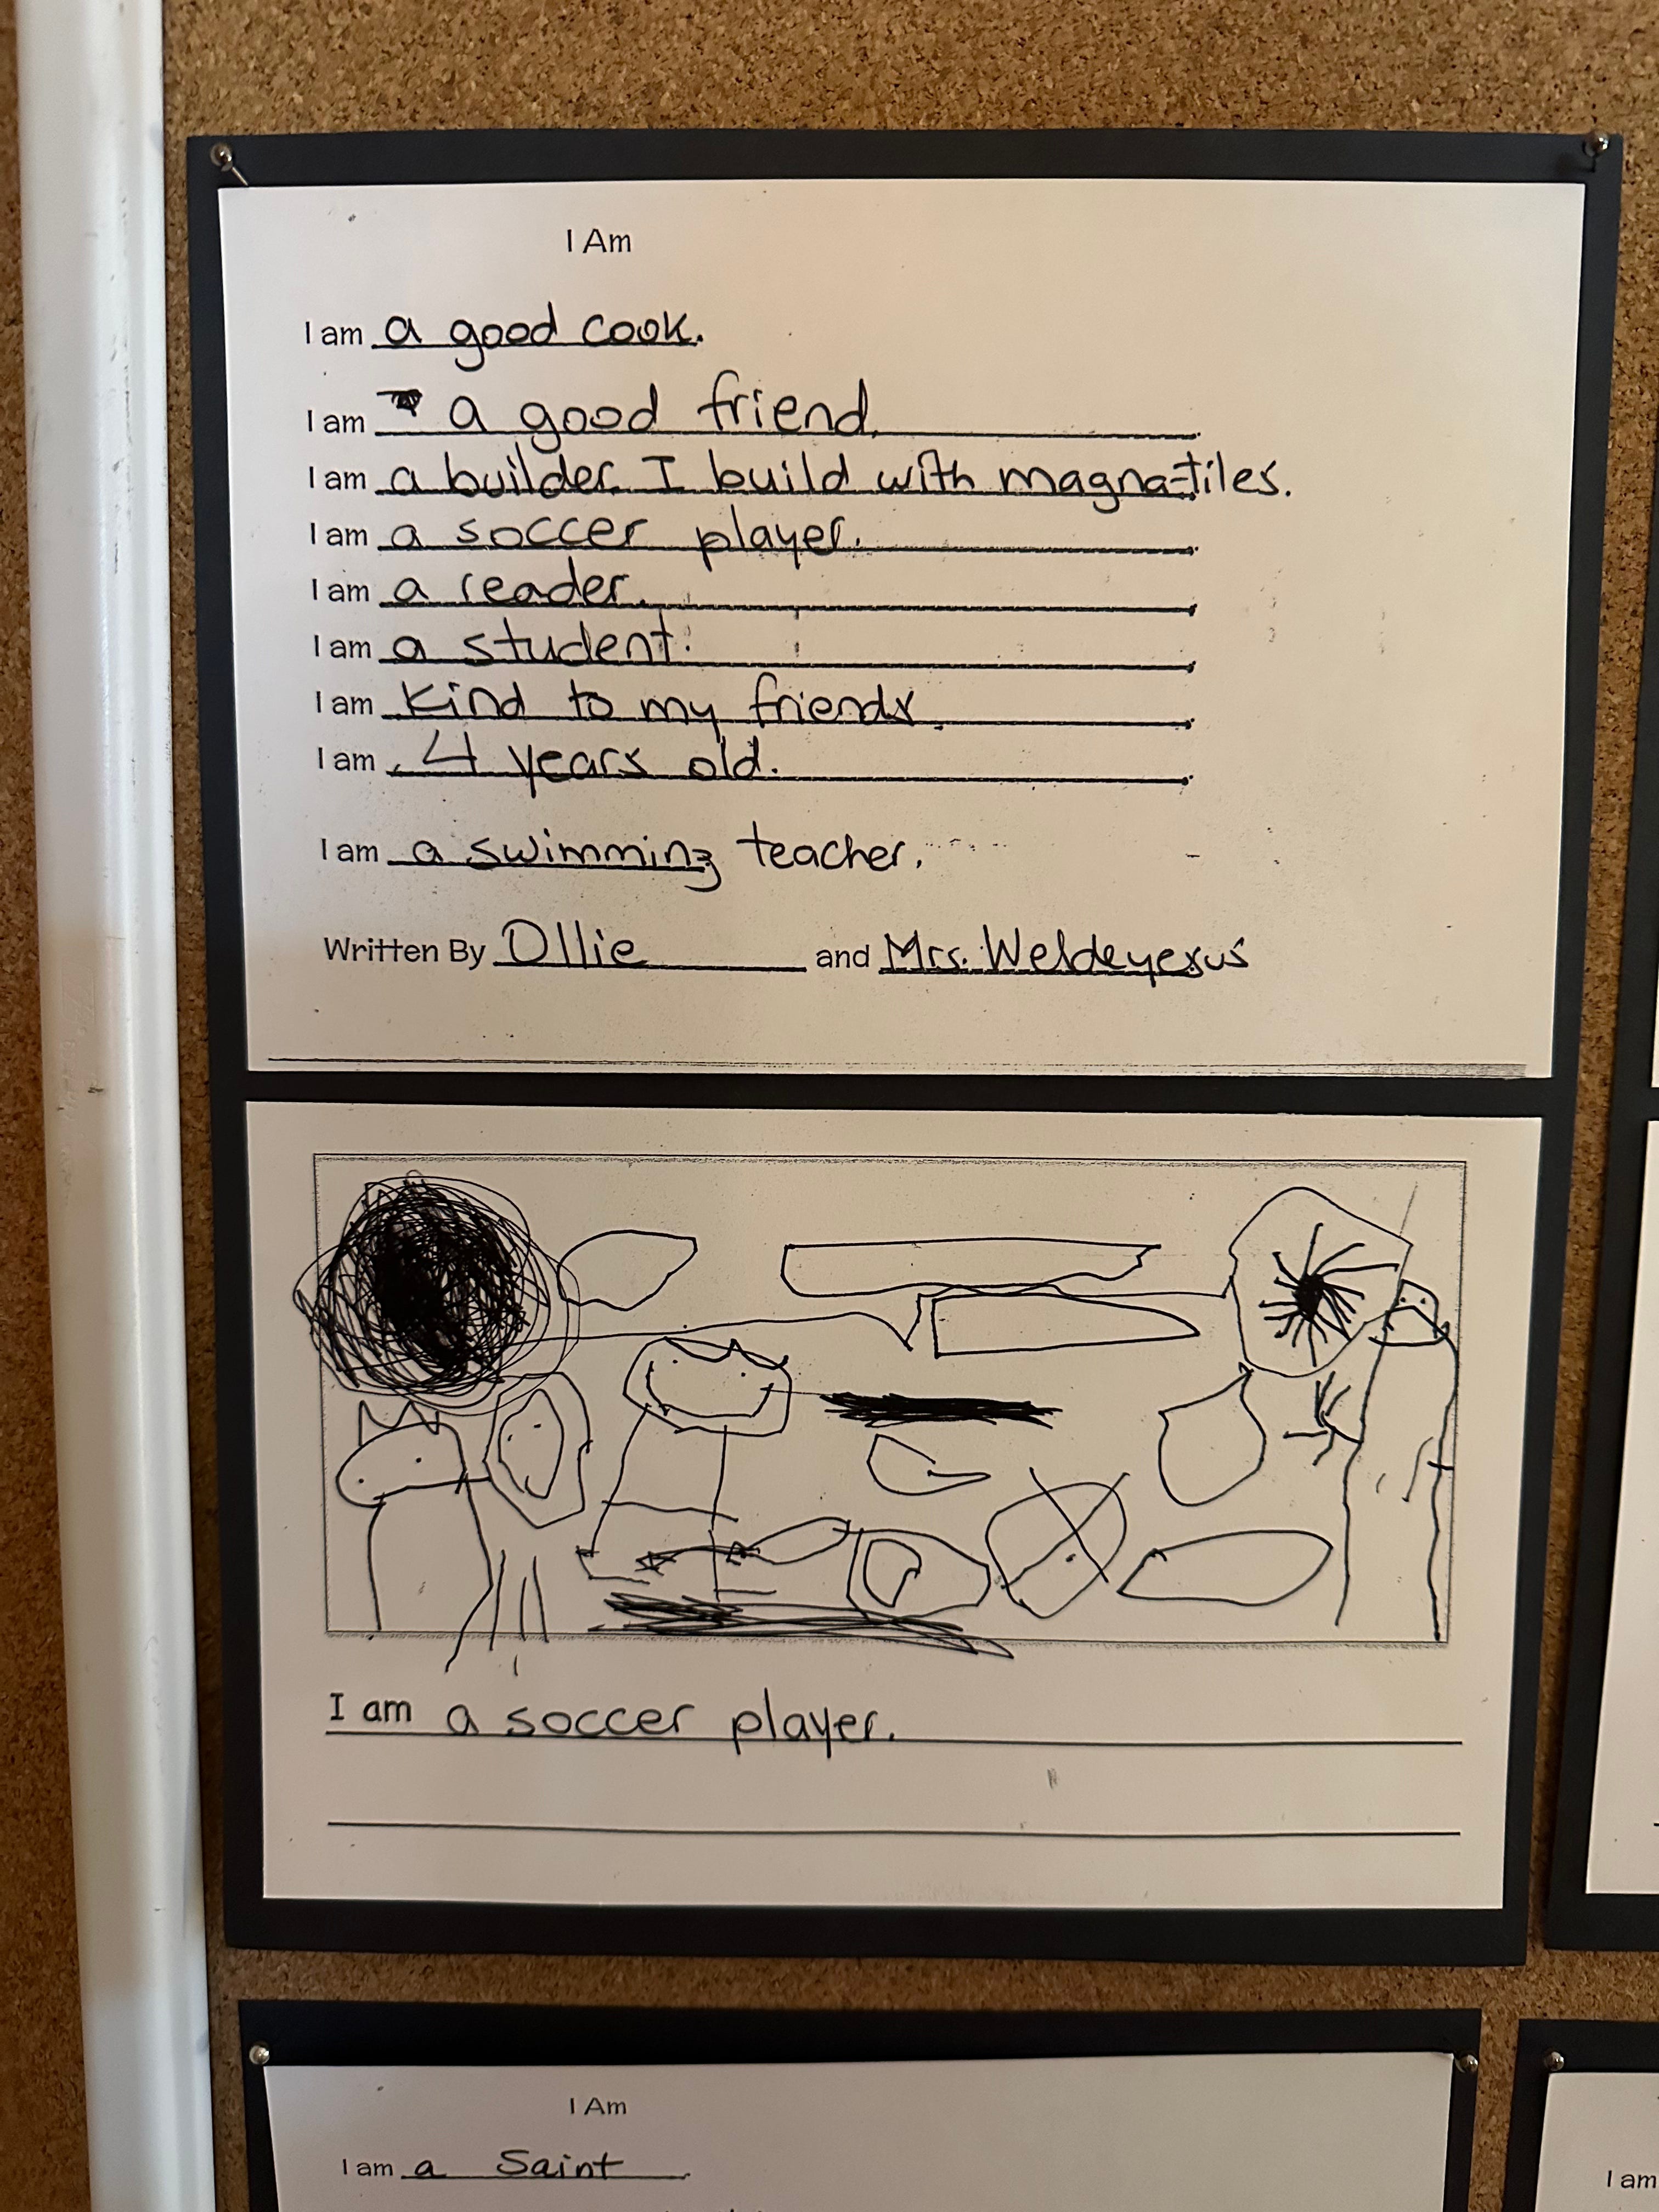 I Am
I am a good cook.
I am a good friend.
I am a builder. I build with magna-tiles.
I am a soccer player.
I am a reader.
I am a student.
I am kind to my friends.
I am 4 years old.
I am a swimming teacher.
Written By Ollie and Mrs. Weldeyesus
I am a soccer player.
I Am
I am a Saint
I am